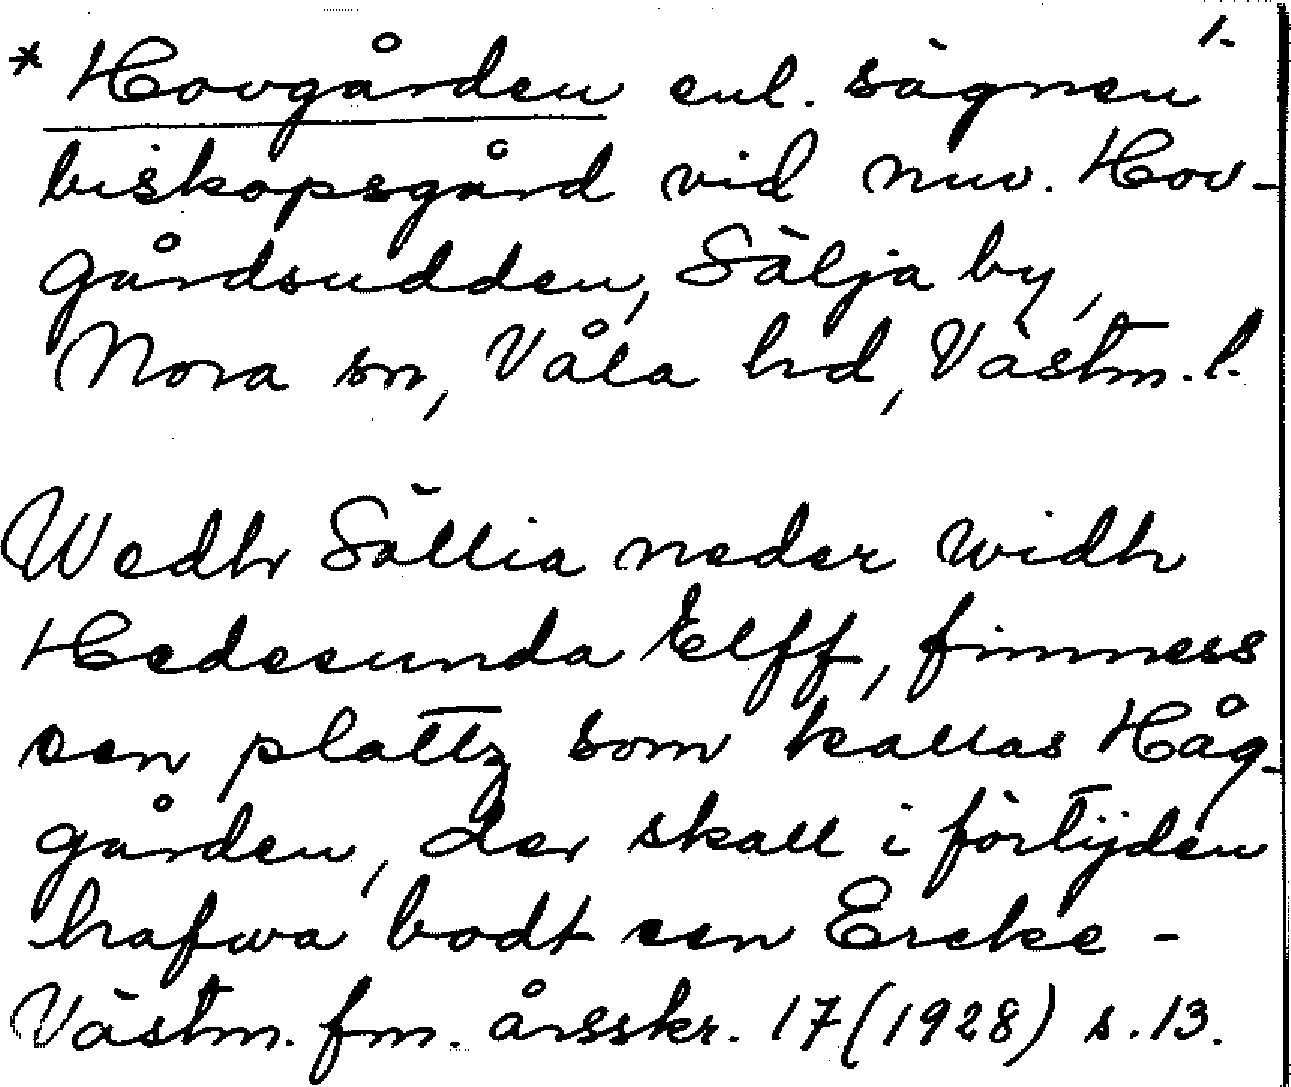 1.
* Hovgården enl. sägnen
biskopsgård vid nuv. Hov-
gårdsudden, Sälja by,
Nora sn, Våla hd, Västm. l.
Wedh Sällia neder widh
Hedesunda Elff, finness
een plattz som kallas Håg-
gården, der skall i förtijden
hafwa bodt een Ercke -
Västm. fm. årsskr. 17 (1928) s. 13.